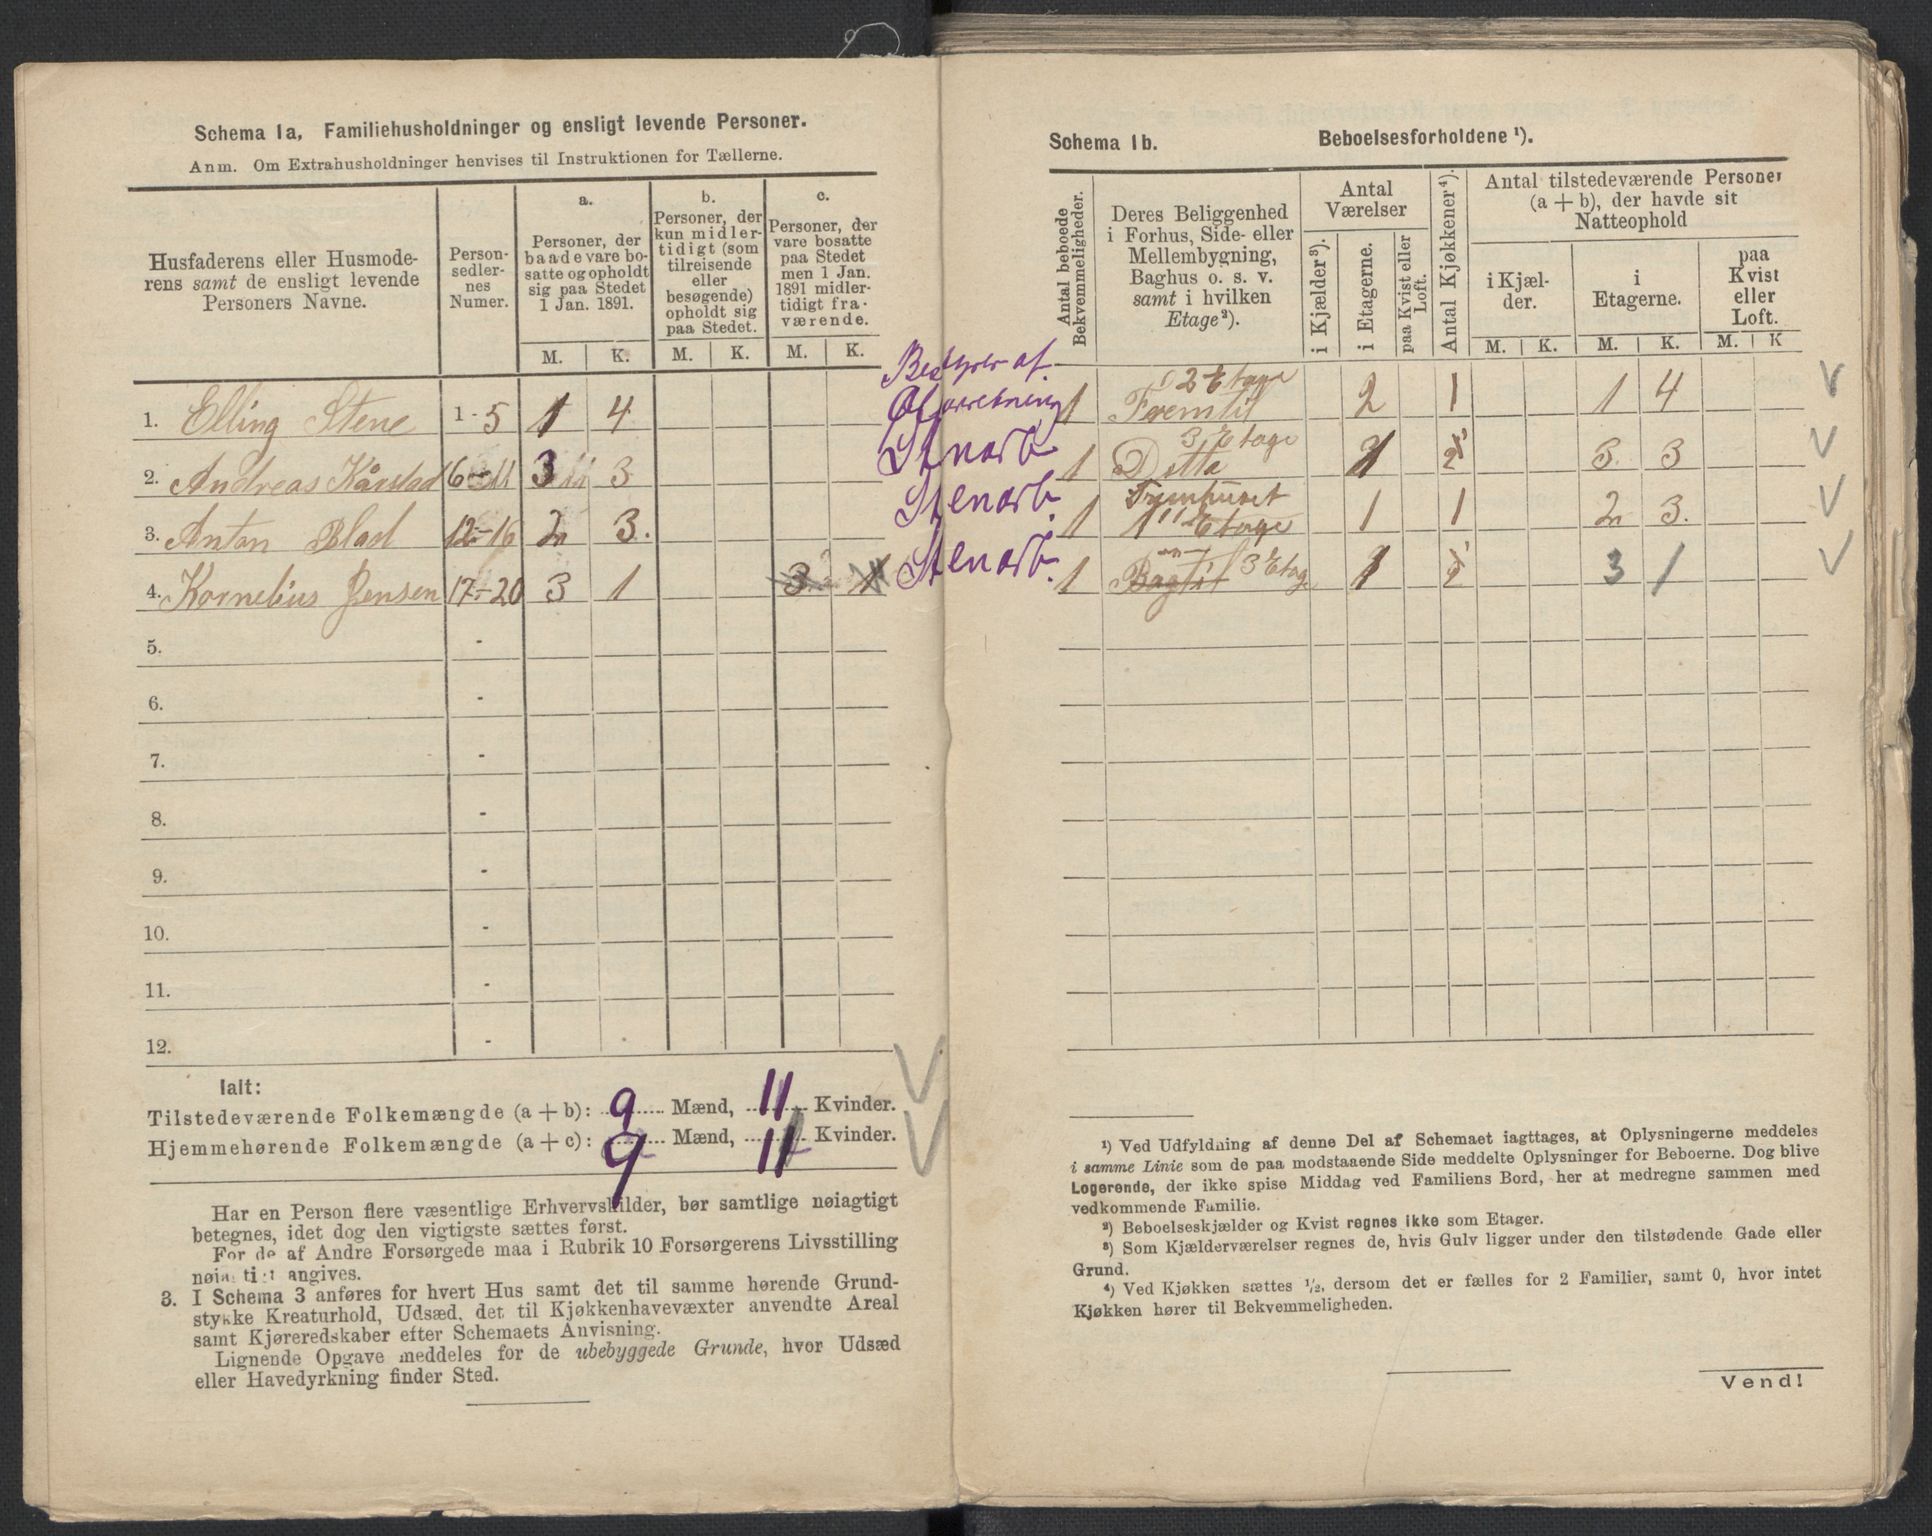 Schema 1a, Familiehusholdninger og ensligt levende Personer.
Anm. Om Extrahusholdninger henvises til Instruktionen for Tællerne.
Husfaderens eller Husmode-
rens samt de ensligt levende
Personers Navne.
Person-
sedler-
nes
Numer.
a.
Personer, der
baade vare bo-
satte og opholdt
sig paa Stedet
1 Jan. 1891.
b.
Personer, der
kun midler-
tidigt (som
tilreisende
eller
besøgende)
opholdt sig
paa Stedet.
c.
Personer, der
vare bosatte
paa Stedet
men 1 Jan.
1891 midler-
tidigt fra-
værende.
M. K. M. K. M. K.
1. Elling Stene 1-5 1 4
2. Andreas Kårstad 6-11 3 3
3. Anton Blad 12-16 2 3.
4. Kornelius Jensen 17-20 3 1 3 1
5. -
6. -
7. -
8. -
9. -
10. -
11. -
12. -
Ialt:
Tilstedeværende Folkemængde (a + b): 9 Mænd, 11 Kvinder.
Hjemmehørende Folkemængde (a + c): 9 Mænd, 11 Kvinder.
Har en Person flere væsentlige Erhvervskilder, bør samtlige nøiagtigt
betegnes, idet dog den vigtigste sættes først.
For de af Andre Forsørgede maa i Rubrik 10 Forsørgerens Livsstilling
nøiagtigt angives.
3. I Schema 3 anføres for hvert Hus samt det til samme hørende Grund-
stykke Kreaturhold, Udsæd, det til Kjøkkenhavevæxter anvendte Areal
samt Kjøreredskaber efter Schemaets Anvisning.
Lignende Opgave meddeles for de ubebyggede Grunde, hvor Udsæd
eller Havedyrkning finder Sted.
Schema 1b. Beboelsesforholdene ¹).
Antal beboede
Bekvemmeligheder.
Deres Beliggenhed
i Forhus, Side- eller
Mellembygning,
Baghus o. s. v.
samt i hvilken
Etage²).
Antal
Værelser
i Kjælder³).
i Etagerne.
paa Kvist eller
Loft.
Antal Kjøkkener⁴).
Antal tilstedeværende Personer
(a + b), der havde sit
Natteophold
i Kjæl-
der.
i
Etagerne.
paa
Kvist
eller
Loft.
M. K. M. K. M. K
Bestyrer af
2 Etage
1 Fremtil 2 1 1 4
3 Etage
Stenarb 1 Ditto 1 3 3
Stenarb. 1 1 Etage 1 1 2 3.
Stenarb. 1 Bagtil 3 Etag 1 3 1
¹) Ved Udfyldning af denne Del af Schemaet iagttages, at Oplysningerne meddeles
i samme Linie som de paa modstaaende Side meddelte Oplysninger for Beboerne. Dog blive
Logerende, der ikke spise Middag ved Familiens Bord, her at medregne sammen med
vedkommende Familie.
²) Beboelseskjælder og Kvist regnes ikke som Etager.
³) Som Kjælderværelser regnes de, hvis Gulv ligger under den tilstødende Gade eller
Grund.
⁴) Ved Kjøkken sættes ½, dersom det er fælles for 2 Familier, samt 0, hvor intet
Kjøkken hører til Bekvemmeligheden.
Vend!